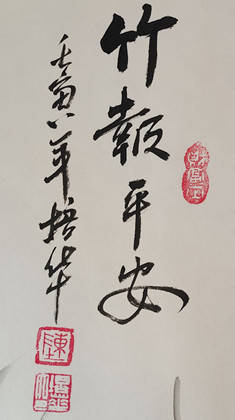 竹報平安
壬寅年梧华
陳